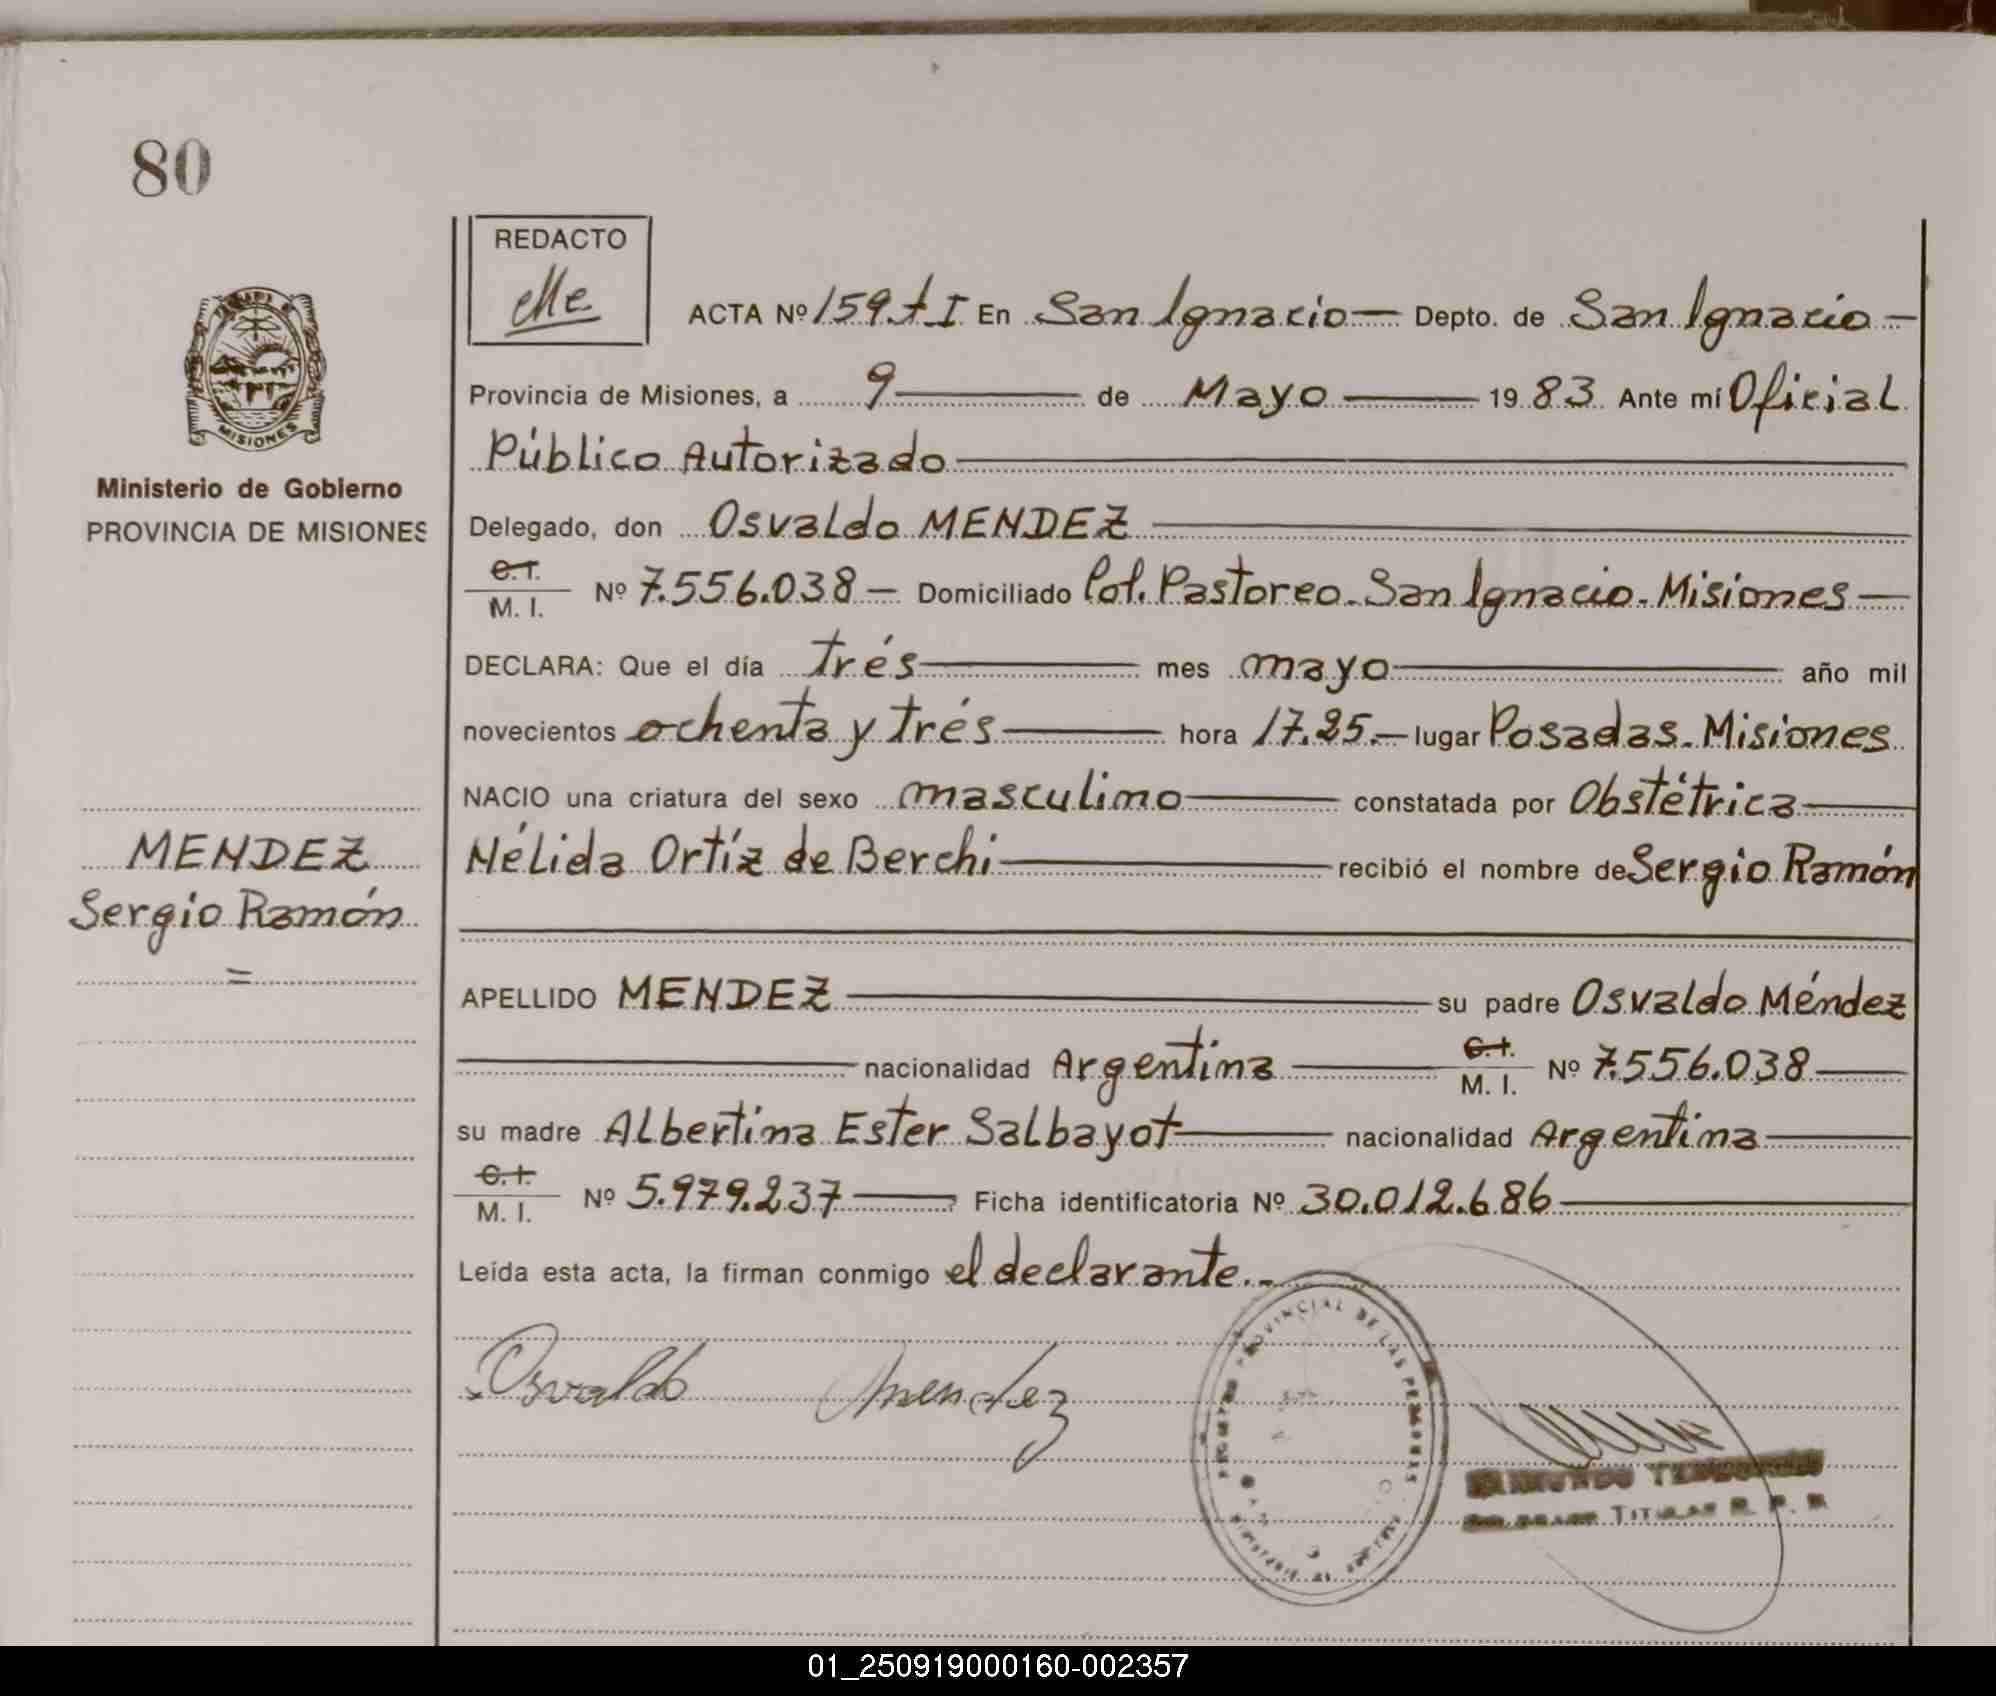 80
REDACTO
ACTA Nº 159 t I En San Ignacio — Depto. de San Ignacio —
Provincia de Misiones, a 9 — de Mayo — 19 83 Ante mí Oficial
Público Autorizado
Delegado, don Osvaldo MENDEZ
C.I.
M. I. Nº 7.556.038 — Domiciliado Col. Pastoreo - San Ignacio - Misiones —
DECLARA: Que el día trés — mes mayo — año mil
novecientos ochenta y trés — hora 17.25.— lugar Posadas - Misiones
NACIO una criatura del sexo masculino — constatada por Obstétrica —
Nélida Ortíz de Berchi — recibió el nombre de Sergio Ramón
APELLIDO MENDEZ — su padre Osvaldo Méndez
— nacionalidad Argentina — C.I. M. I. Nº 7.556.038 —
su madre Albertina Ester Salbayot — nacionalidad Argentina —
C.I.
M. I. Nº 5.979.237 — Ficha identificatoria Nº 30.012.686 —
Leída esta acta, la firman conmigo el declarante.-
Osvaldo Mendez
PROVINCIAL DE LAS PERSONAS
TITULAR R. P. P.
MISIONES
Ministerio de Gobierno
PROVINCIA DE MISIONES
MENDEZ
Sergio Ramón
=
01_250919000160-002357